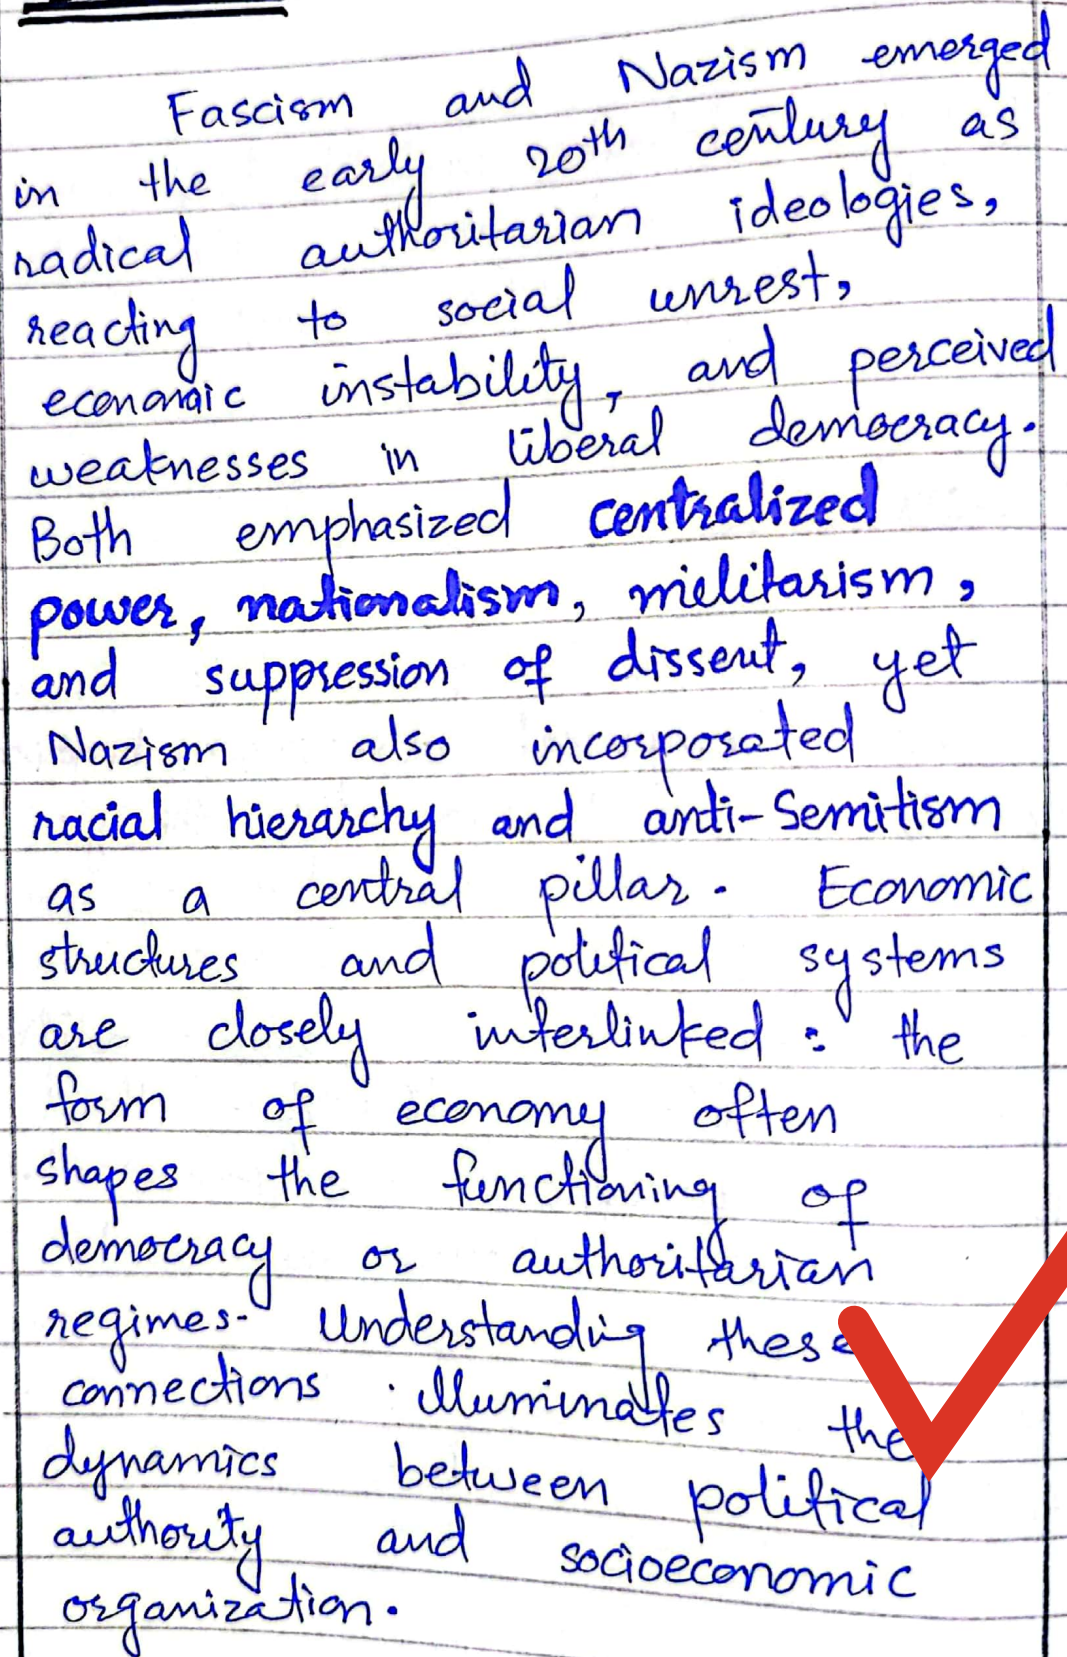 Fascism and Nazism emerged
in the early 20th century as
radical authoritarian ideologies,
reacting to social unrest,
economic instability, and perceived
weaknesses in liberal democracy.
Both emphasized centralized
power, nationalism, militarism,
and suppression of dissent, yet
Nazism also incorporated
racial hierarchy and anti-Semitism
as a central pillar. Economic
structures and political systems
are closely interlinked: the
form of economy often
shapes the functioning of
democracy or authoritarian
regimes. Understanding these
connections illuminates the
dynamics between political
authority and socioeconomic
organization.